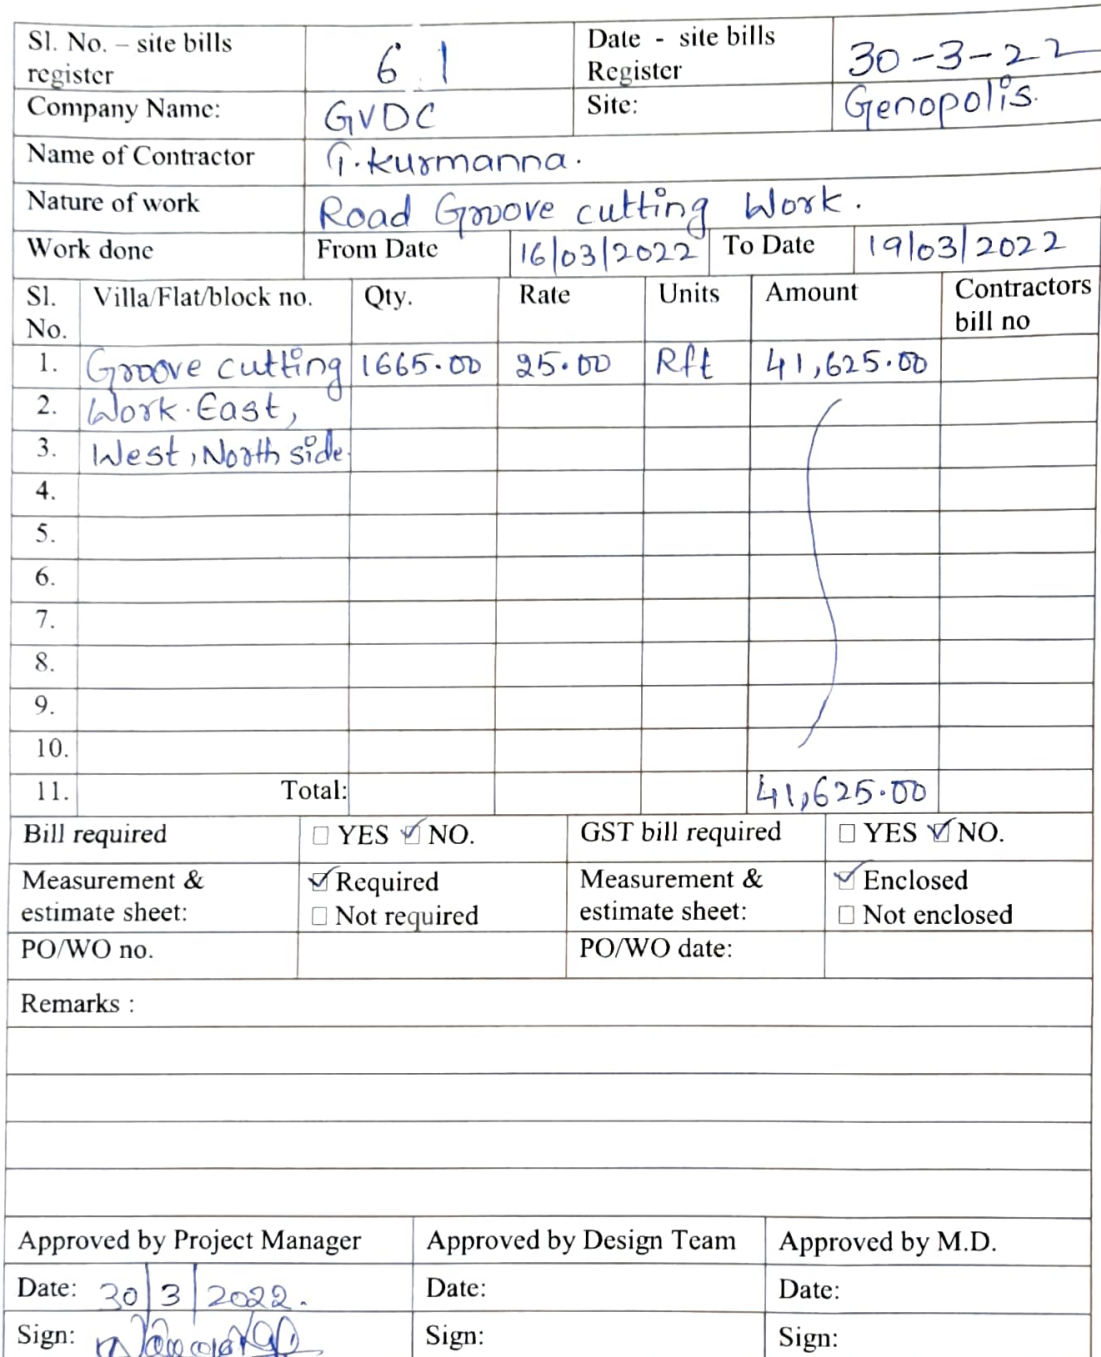 Sl. No. – site bills register 61 Date - site bills Register 30-3-22
Company Name: GVDC Site: Genopolis.
Name of Contractor G.kurmanna.
Nature of work Road Groove cutting Work.
Work done From Date 16/03/2022 To Date 19/03/2022
Sl. No. Villa/Flat/block no. Qty. Rate Units Amount Contractors bill no
1. Groove cutting 1665.00 25.00 Rft 41,625.00
2. Work.East,
3. West, North side
4.
5.
6.
7.
8.
9.
10.
11. Total: 41,625.00
Bill required ☐ YES ☑ NO. GST bill required ☐ YES ☑ NO.
Measurement & estimate sheet: ☑ Required ☐ Not required Measurement & estimate sheet: ☑ Enclosed ☐ Not enclosed
PO/WO no. PO/WO date:
Remarks :
Approved by Project Manager Approved by Design Team Approved by M.D.
Date: 30/3/2022. Date: Date:
Sign: Sign: Sign: